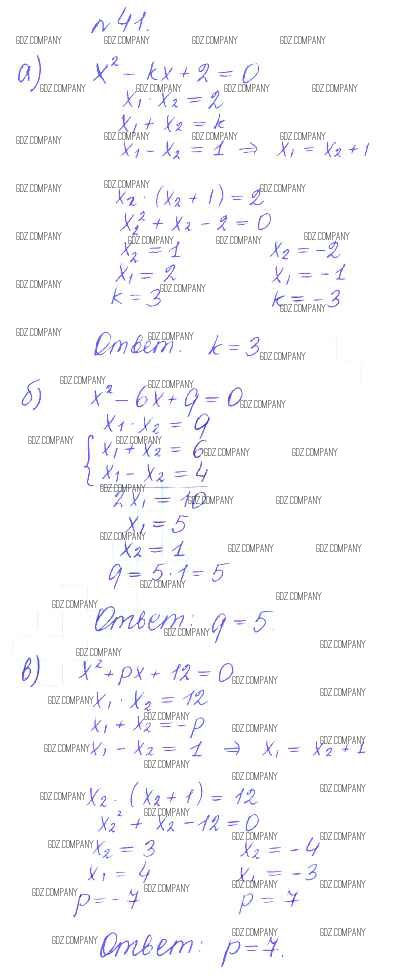 №41.
а) x² - kx + 2 = 0
x₁ · x₂ = 2
x₁ + x₂ = k
x₁ - x₂ = 1 ⇒ x₁ = x₂ + 1
x₂ · (x₂ + 1) = 2
x₂² + x₂ - 2 = 0
x₂ = 1 x₂ = -2
x₁ = 2 x₁ = -1
k = 3 k = -3
Ответ. k = 3
б) x² - 6x + q = 0
x₁ · x₂ = q
{ x₁ + x₂ = 6
x₁ - x₂ = 4
2x₁ = 10
x₁ = 5
x₂ = 1
q = 5 · 1 = 5
Ответ: q = 5
в) x² + px + 12 = 0
x₁ · x₂ = 12
x₁ + x₂ = -p
x₁ - x₂ = 1 ⇒ x₁ = x₂ + 1
x₂ · (x₂ + 1) = 12
x₂² + x₂ - 12 = 0
x₂ = 3 x₂ = -4
x₁ = 4 x₁ = -3
p = -7 p = 7
Ответ: p = 7.
GDZ.COMPANY